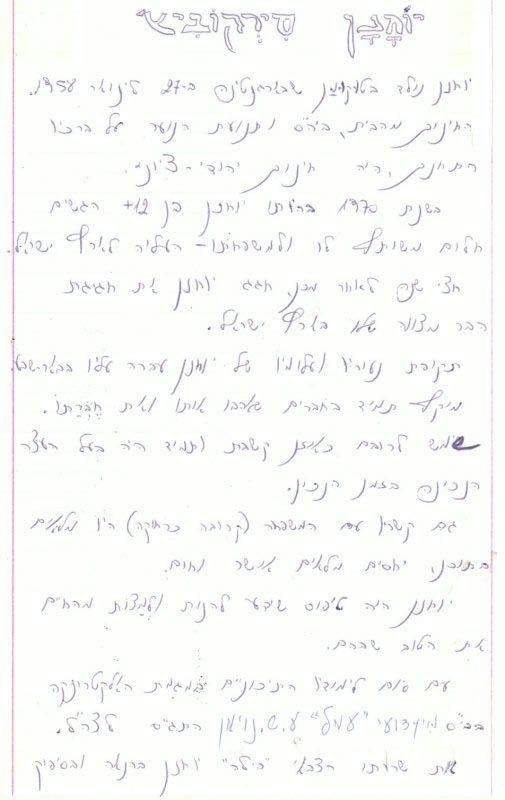 יוחנן סירקוביץ
יוחנן נולד בטוקומן שבארגנטינה ב-27 לינואר 1958.
החינוך מהבית, ביה"ס ותנועת הנוער על ברכיו
התחנך, היה חינוך יהודי-ציוני.
בשנת 1970 בהיותו יוחנן בן 12+ הגשים
חלום משותף לו ולמשפחתו - העליה לארץ ישראל.
חצי שנה לאחר מכן, חגג יוחנן את חגיגת
הבר מצווה שלו בארץ ישראל.
תקופת נעוריו ועלומיו של יוחנן עברה עליו בבאר-שבע.
מוקף תמיד בחברים שאהבו אותו ואת חֶבְרָתוֹ.
שימש לרובם כאוזן קשבת ותמיד היה בעל העצה
הנכונה בזמן הנכון.
גם קשריו עם המשפחה (קרובה כרחוקה) היו מלאים
בתוכן, יחסים מלאים אושר וחום.
יוחנן היה טיפוס שידע להנות ולְמַצּוֹת מהחיים
את הטוב שבהם.
עם סיום לימודיו התיכוניים במגמת האלקטרוניקה
בבי"ס מקצועי "עמל" ע.ש. נוימן התגייס לצה"ל.
את שרותו הצבאי "בילה" יוחנן בהנאה ובסיפוק